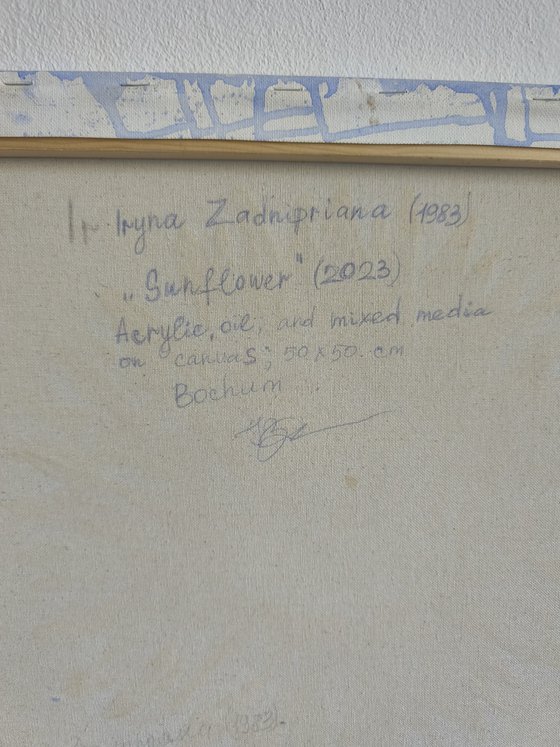 Ir Iryna Zadnipriana (1983)
„Sunflower" (2023)
Acrylic, oil, and mixed media
on canvas; 50x50. cm
Bochum
(1983).